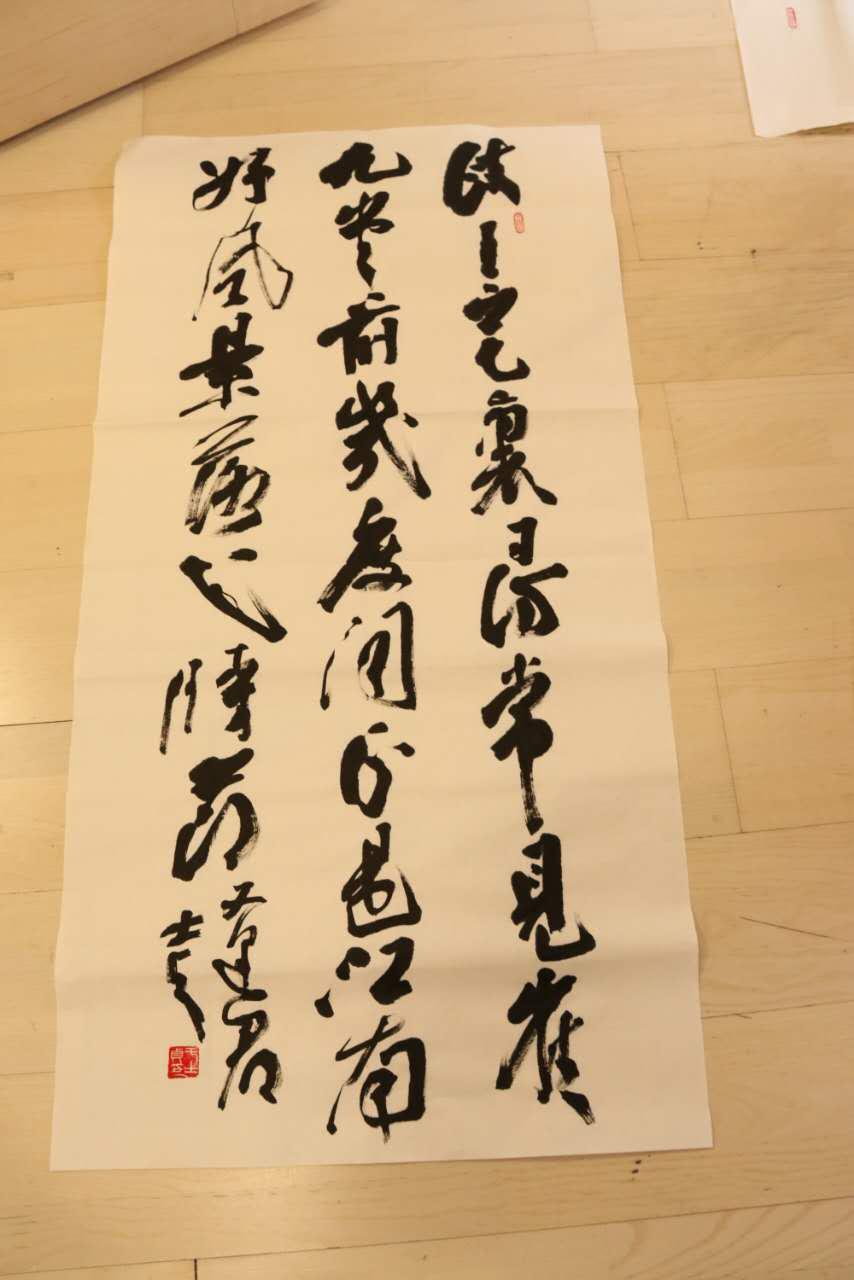 岐王宅裏尋常見崔
九堂前幾度聞正是江南
好風景落花時節又逢君